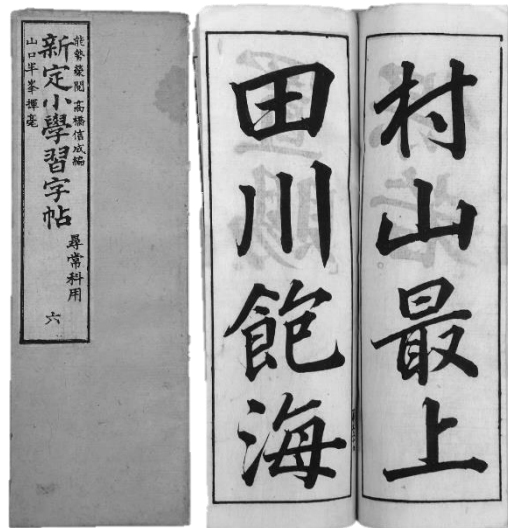 能勢榮閱 高橋信成編
新定小學習字帖
山口半峯揮毫
尋常科用
六
村山最上
田川飽海